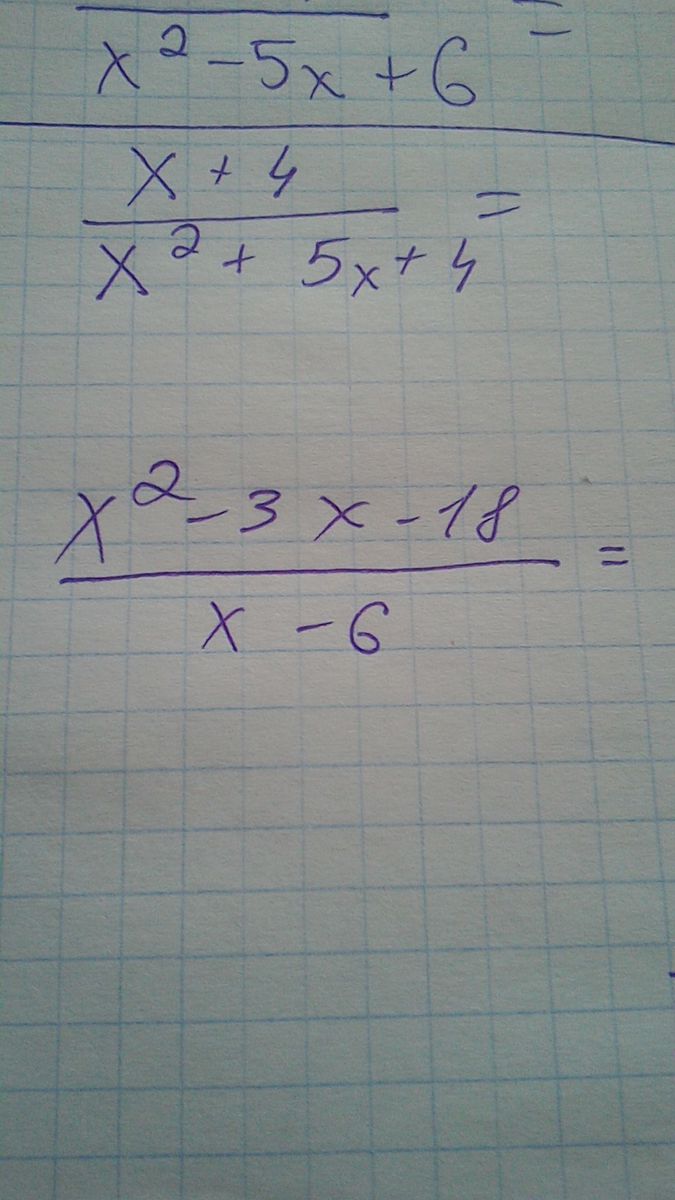 =
x² - 5x + 6
x + 4
=
x² + 5x + 4
x² - 3x - 18
=
x - 6